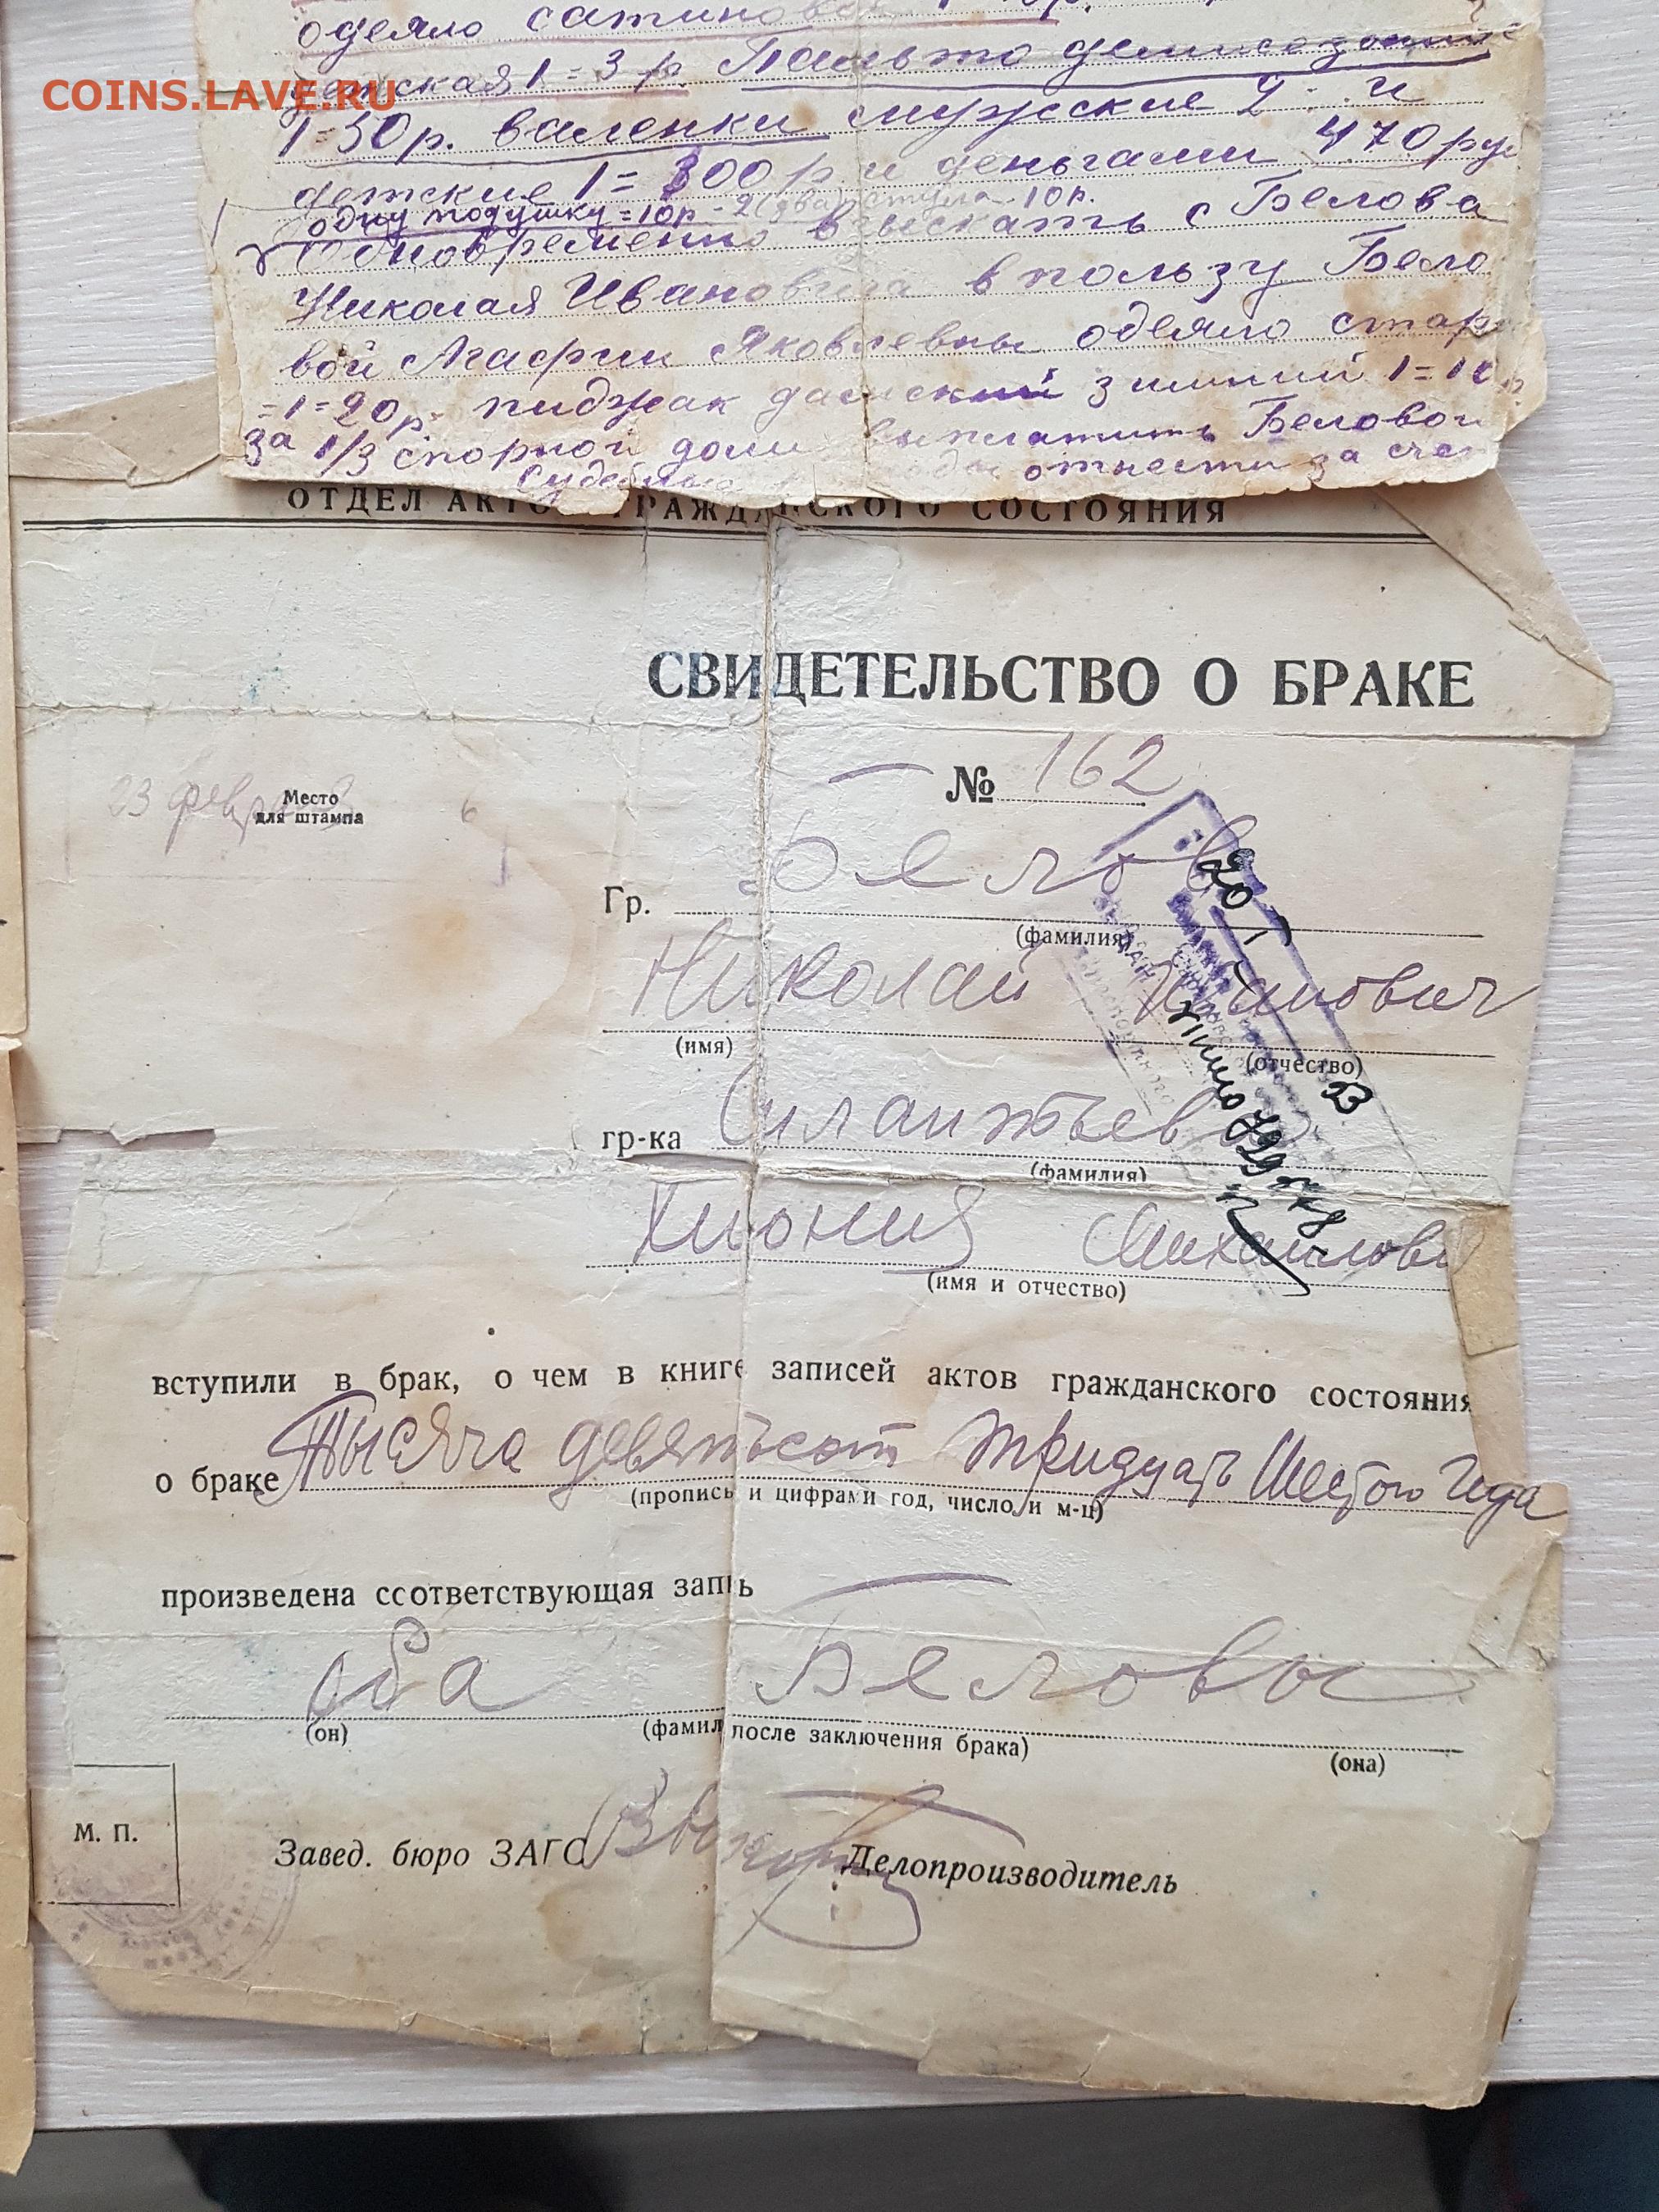 одеяло сатиновое
COINS.LAVE.RU
детская 1=3 р. Пальто демисезонные
1=50р. валенки мужские 2 и
детские 1= 300 р и деньгами 470 руб
одну подушку=10р - 2 (два) стула 10р.
Одновременно взыскать с Белова
Николая Ивановича в пользу Бело
вой Агафии Яковлевны одеяло стар
=1=20р. пиджак дамский зимний 1=10
за 1/3 спорной доли выплатить Беловой
Судебные отнести за счет
ОТДЕЛ АКТОВ ГРАЖДАНСКОГО СОСТОЯНИЯ
СВИДЕТЕЛЬСТВО О БРАКЕ
№ 162
23 февраля 6
Место
для штампа
Гр. Белов
(фамилия)
Николай Иванович
(имя) (отчество)
гр-ка Силантьева
(фамилия)
Хиония Михайлов
(имя и отчество)
вступили в брак, о чем в книге записей актов гражданского состояния
о браке Тысяча девятьсот тридцать Шестого Года
(прописью и цифрами год, число и м-ц)
произведена соответствующая запись
оба Беловы
(он) (фамил после заключения брака) (она)
М. П.
Завед. бюро ЗАГС Делопроизводитель